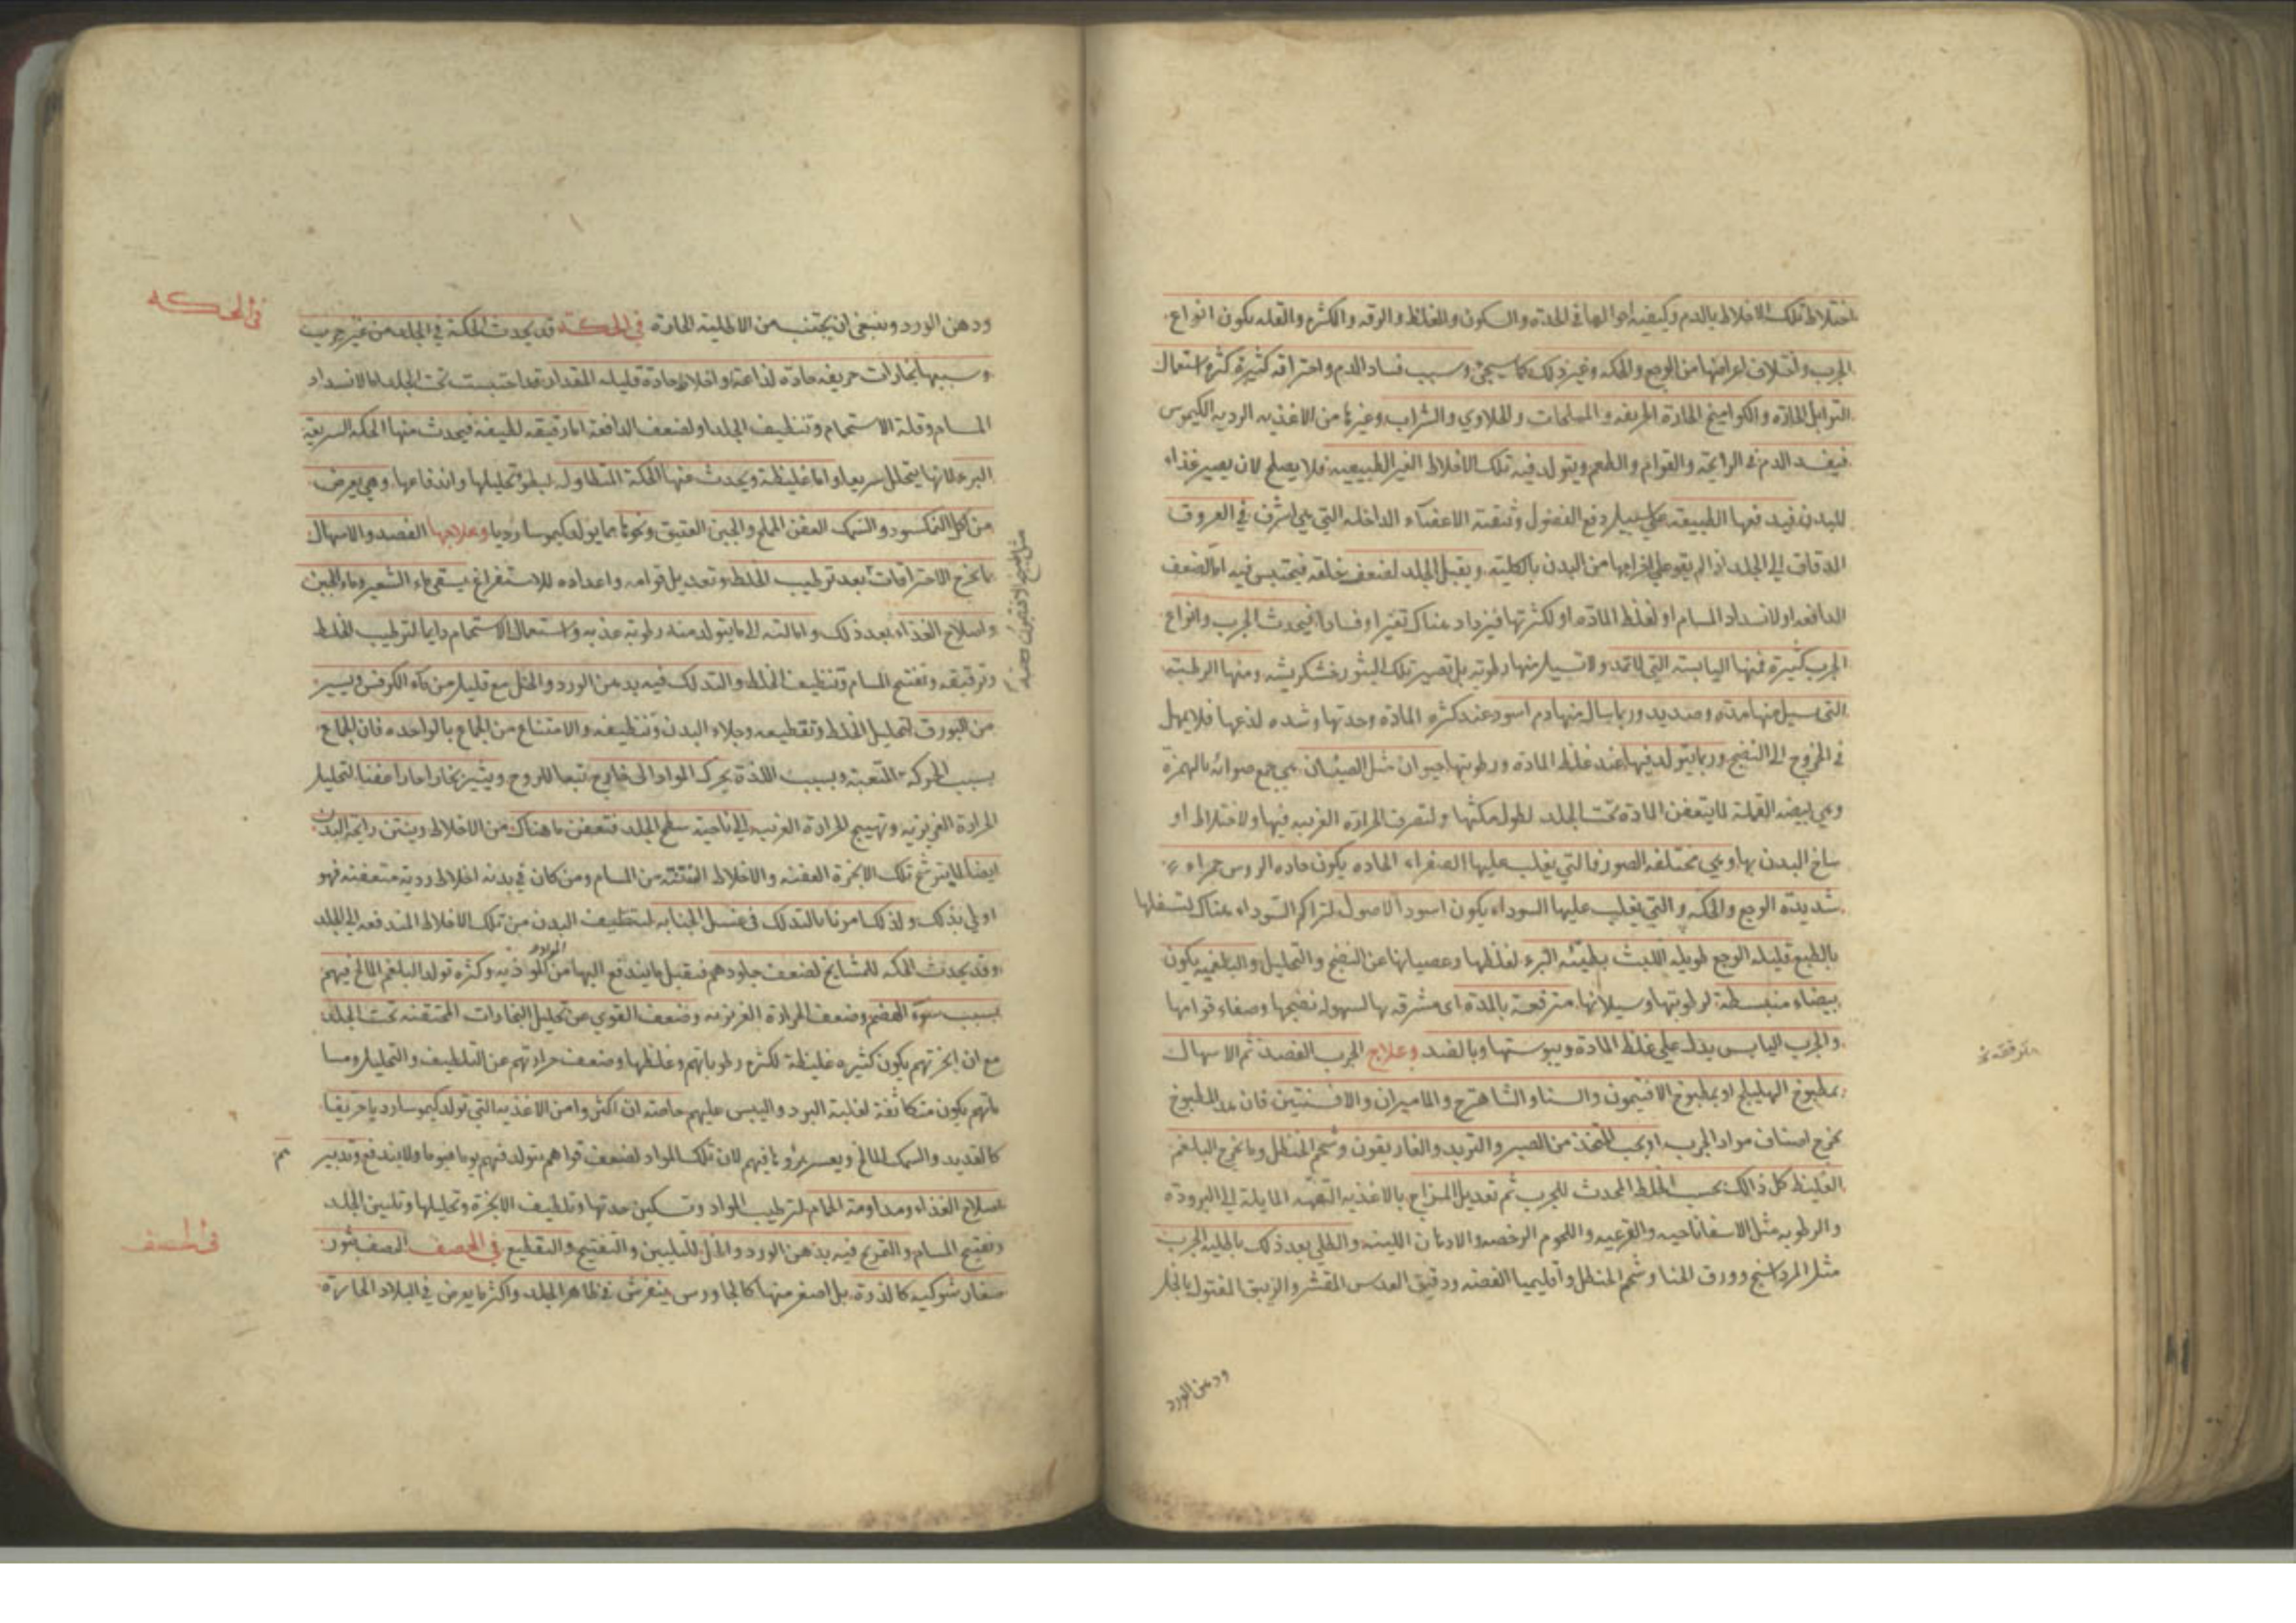 اختلاط تلك الاخلاط بالدم وكيفية احوالها في الحدة والسكون والغلظ والرقه والكثرة والقله يكون انواع
الجرب واختلاف اعراضها من الوجع والحكه وغير ذلك كما سيجئ وسبب فساد الدم واحتراقه كثيرة كثرة استعمال
التوابل الحادة والكواميخ الحادة الحريفه و المملحات والحلاوي والشراب وغيرها من الاغذيه الرديه الكيموس
فيفسد الدم في الرايحة والقوام والطعم ويتولد فيه تلك الاخلاط الغير الطبيعيه فلا يصلح لان يصير غذاء
للبدن فيدفعها الطبيعة على سبيل دفع الفضول وتنقية الاعضاء الداخله التي هي اشرف في العروق
الدقاق الى الجلد اذ لم يقو على اخراجها من البدن بالكليه ويقبل الجلد لضعف خلقه فيحتبس فيه اما لضعف
الدافعه او لانسداد المسام او لغلظ المادة او لكثرتها فيزداد هناك تغيرا وفسادا فيحدث الجرب وانواع
الجرب كثيرة فمنها اليابسة التي لا تمد ولا تسيل منها رطوبه بل تصير تلك البثور خشكريشه ومنها الرطبة
التي يسيل منها مدة وصديد وربما سال منها دم اسود عند كثرة المادة وحدتها وشده لذعها فلا يمهل
في الخروج الى النضج وربما يتولد فيها عند غلظ المادة ورطوبتها حيوان مثل الصئبان هي جمع صوابه بالهمزة
وهي بيضه القملة لما يتعفن المادة تحت الجلد لطول مكثها ولتصرف الحرارة الغريبه فيها ولاختلاط او
ساخ البدن بها وهي مختلفه الصور فالتي يغلب عليها الصفراء الحاده يكون حاده الروس حمراء
شديدة الوجع والحكه والتي يغلب عليها السوداء يكون اسود الاصول لتراكم السوداء هناك لتسفلها
بالطبع قليله الوجع طويله اللبث بطيئه البرء لغلظها وعصيانها عن النضج والتحليل والبلغميه يكون
بيضاء منبسطة لرطوبتها وسيلانها مترقعة بالمدة اى مشرقه بها لسهولة نضجها وصفاء قوامها
والجرب اليابس يدل على غلظ المادة ويبوستها وبالضد وعلاج الجرب الفصد ثم الاسهال
بمطبوخ الهليلج او بمطبوخ الافتيمون والسنا والشاهترج والماميران والافسنتين فان هذا المطبوخ
يخرج اصناف مواد الجرب او بحب المتخذ من الصبر والتربد والغاريقون وشحم الحنظل وما يخرج البلغم
الغليظ كل ذالك بحسب الخلط المحدث للجرب ثم تعديل المزاج بالاغذيه التفهه المايلة الى البرودة
والرطوبه مثل الاسفاناخيه والقرعيه واللحوم الرخصه والادهان اللينه والطلي بعد ذلك باطلية الجرب
مثل المرداسنج وورق الحنا وشحم الحنظل واقليميا الفضه ودقيق العدس المقشر والزيبق المقتول بالخل
ودهن الورد
ودهن الورد وينبغي ان يجتنب من الاطلية الحادة في الحكة قد يحدث الحكة في الجلد من غير جرب
وسببها بخارات حريفه حادة لذاعة او اخلاط حادة قليله المقدار قد احتبست تحت الجلد اما لانسداد
المسام وقلة الاستحمام وتنظيف الجلد او لضعف الدافعة اما رقيقه لطيفه فيحدث منها الحكة السريعة
البرء لانها يتحلل سريعا واما غليظة ويحدث منها الحكة المتطاوله لبطؤ تحليلها واندفاعها وهي يعرض
من اكل النمكسود والسمك العفن المملح والجبن العتيق ونحوها مما يولد كيموسا رديا وعلاجها الفصد والاسهال
بما يخرج الاحتراقات بعد ترطيب الخلط وتعديل قوامه واعداده للاستفراغ بسقي ماء الشعير وماء الجبن
واصلاح الغذاء بعد ذلك وامالته الى ما يتولد منه رطوبة عذبه واستعمال الاستحمام دايما لترطيب الخلط
وترقيقه وتفتيح المسام وتنظيف الخلط والتدلك فيه بدهن الورد والخل مع قليل من ماء الكرفس ويسير
من البورق لتحليل الخلط وتقطيعه وجلاء البدن وتنظيفه والامتناع من الجماع بالواحده فان الجماع
بسبب الحركه المتعبة وبسبب اللذة يحرك المواد الى خارج تبعا للروح ويثير بخارا حارا عفنا لتحليل
الحرارة الغريزيه وتهييج الحرارة الغريبه الى ناحية سطح الجلد فتعفن ما هناك من الاخلاط وينتن رايحة البدن
ايضا لما يترشح تلك الابخرة العفنه والاخلاط المنتنه من المسام ومن كان في بدنه اخلاط ردية متعفنه فهو
اولى بذلك ولذلك امرنا بالتدلك في غسل الجنابه لتنظيف البدن من تلك الاخلاط المندفعه الى الجلد
وقد يحدث الحكه للمشايخ لضعف جلودهم فيقبل ما يندفع اليها من المواد الموذيه وكثرة تولد البلغم المالح فيهم
بسبب سوء الهضم وضعف الحرارة الغريزيه وضعف القوي عن تحليل البخارات المحتقنه تحت الجلد
مع ان ابخرتهم يكون كثيره غليظة لكثرة رطوباتهم وغلظها وضعف حرارتهم عن التلطيف والتحليل ومسا
ماتهم يكون متكاثفة لغلبة البرد واليبس عليهم خاصة ان اكثروا من الاغذيه التي تولد كيموسا رديا حريفا
كالقديد والسمك المالح ويعسر برؤها فيهم لان تلك المواد لضعف قواهم يتولد فيهم يوما فيوما ولا يندفع وتدبير
اصلاح الغذاء ومداومة الحمام لترطيب المواد وتسكين حدتها وتلطيف الابخرة وتحليلها وتليين الجلد
وتفتيح المسام والتمريخ فيه بدهن الورد والخل للتليين والتفتيح والتقطيع في الحصف الحصف بثور
صغار شوكيه كالذرة بل اصغر منها كالجاورس ينفرش في ظاهر الجلد واكثر ما يعرض في البلاد الحارة
في الحكه
في الحصف